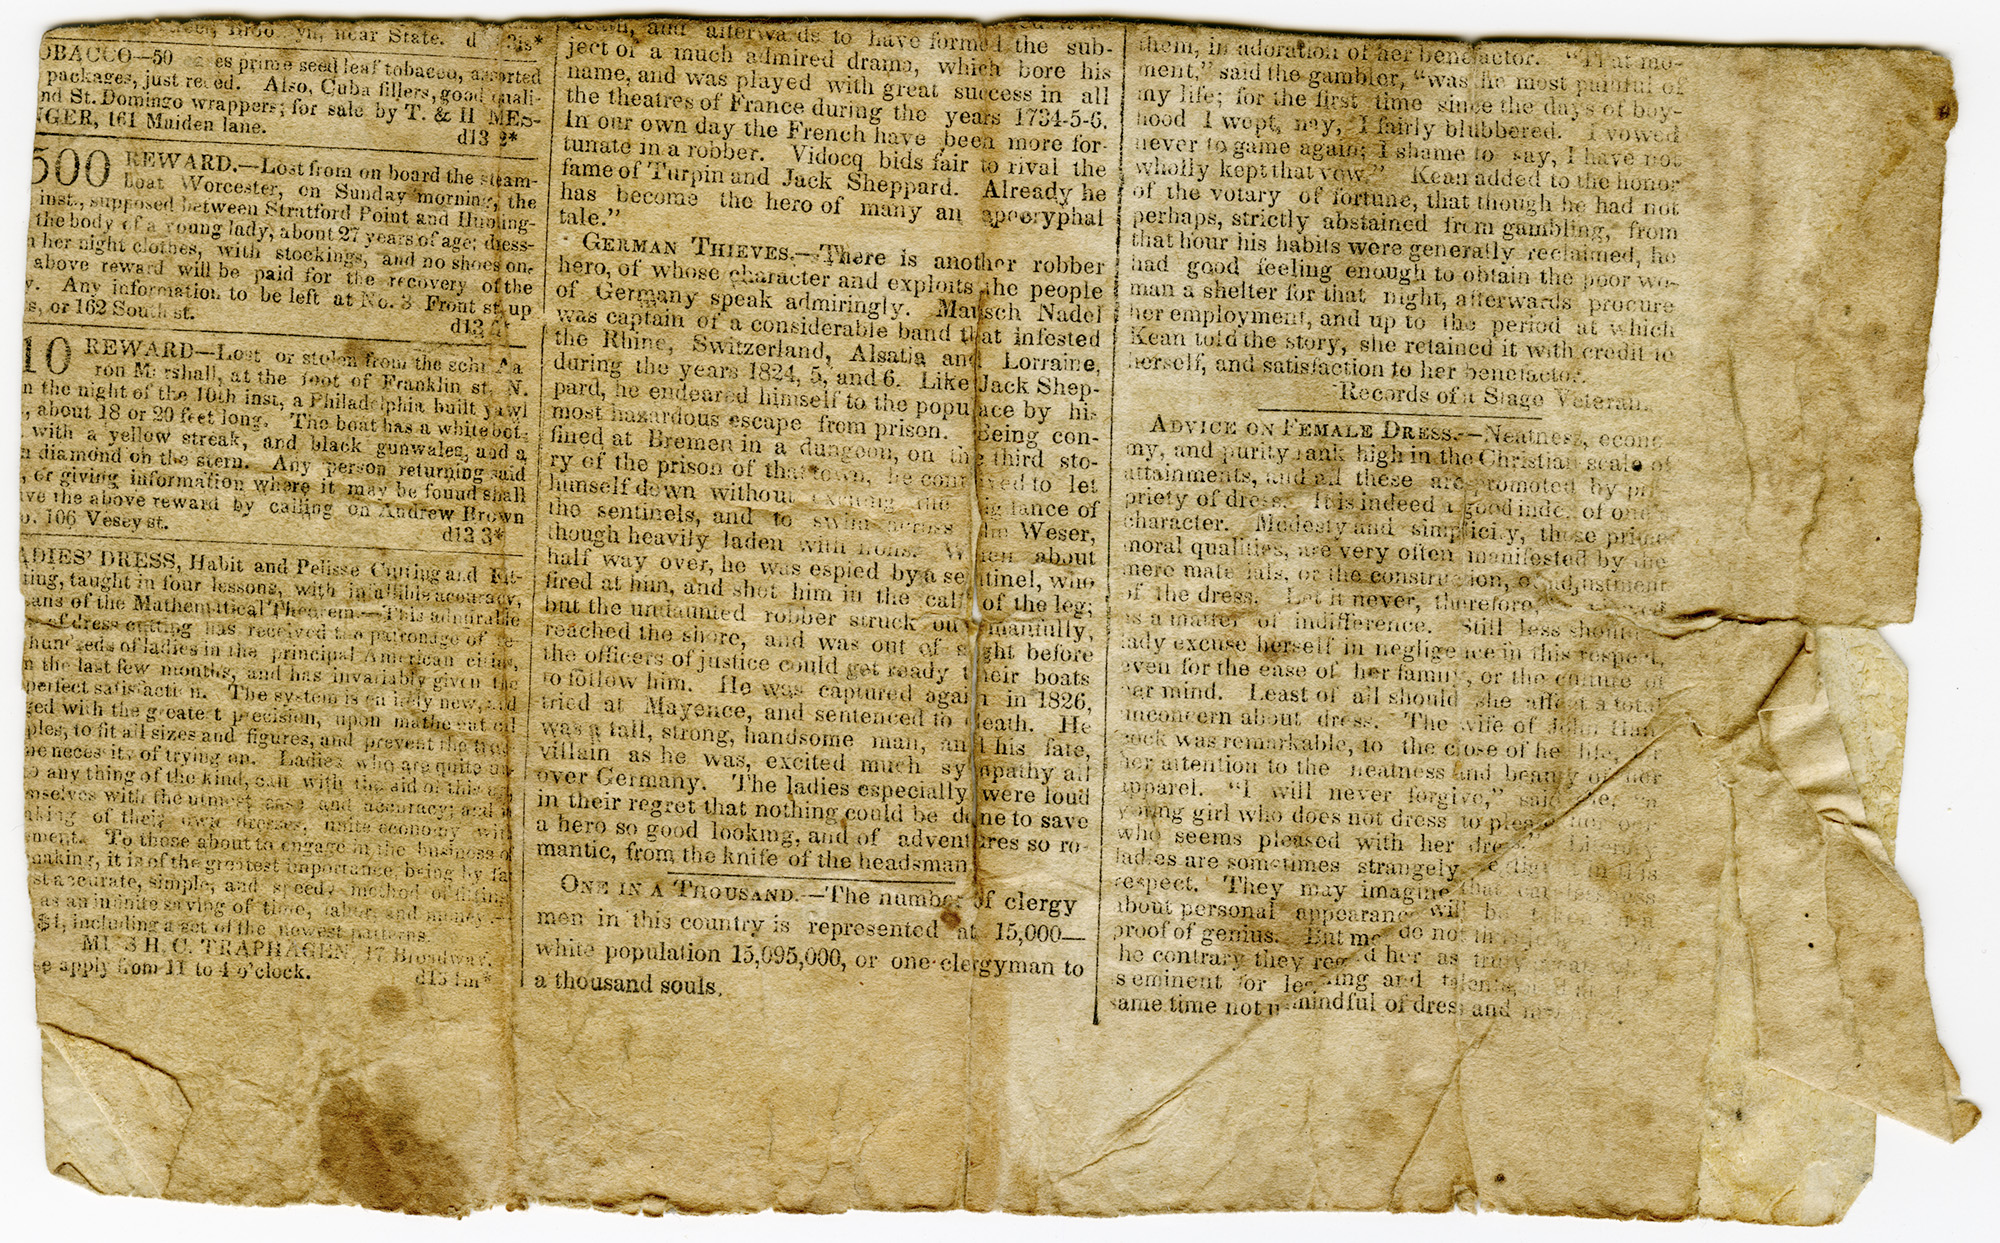 near State.
OBACCO—50 es prime seed leaf tobacco, assorted
packages, just rec ed. Also, Cuba fillers, good quali-
nd St. Domingo wrappers; for sale by T. & H MES-
GER, 161 Maiden lane. d13 2*
500 REWARD.—Lost from on board the steam-
boat Worcester, on Sunday morning, the
inst., supposed between Stratford Point and Hunting-
the body of a young lady, about 27 years of age; dress-
her night clothes, with stockings, and no shoes on.
above reward will be paid for the recovery of the
y. Any information to be left at No. 3 Front st, up
s, or 162 South st. d13
10 REWARD—Lost or stolen from the schr Aa
ron Marshall, at the foot of Franklin st, N.
n the night of the 10th inst, a Philadelphia built yawl
, about 18 or 20 feet long. The boat has a white bot-
with a yellow streak, and black gunwales, and a
diamond on the stern. Any person returning said
, or giving information where it may be found shall
ve the above reward by calling on Andrew Brown
o. 106 Vesey st. d13 3*
ADIES' DRESS, Habit and Pelisse Cutting and Fit-
ting, taught in four lessons, with infallible accuracy,
ans of the Mathematical Theorem.—This admirable
of dress cutting has received the patronage of se-
hundreds of ladies in the principal American cities,
n the last few months, and has invariably given the
perfect satisfaction. The system is entirely new, and
ged with the greatest precision, upon mathematical
ples, to fit all sizes and figures, and prevent the
he necessity of trying on. Ladies who are quite un-
o any thing of the kind, can with the aid of this
mselves with the utmost ease and accuracy; and
aking of their own dresses, unite economy with
ment. To those about to engage in the business of
making, it is of the greatest importance, being by far
st accurate, simple, and speedy method of fitting
as an infinite saving of time, labor, and money.—
$1, including a set of the newest patterns.
MISS H. C. TRAPHAGEN, 17 Broadway.
apply from 11 to 4 o'clock. d13 1m*
and afterwards to have formed the sub-
ject of a much admired drama, which bore his
name, and was played with great success in all
the theatres of France during the years 1734-5-6.
In our own day the French have been more for-
tunate in a robber. Vidocq bids fair to rival the
fame of Turpin and Jack Sheppard. Already he
has become the hero of many an apocryphal
tale."
GERMAN THIEVES.—There is another robber
hero, of whose character and exploits the people
of Germany speak admiringly. Mausch Nadel
was captain of a considerable band that infested
the Rhine, Switzerland, Alsatia and Lorraine,
during the years 1824, 5, and 6. Like Jack Shep-
pard, he endeared himself to the populace by his
most hazardous escape from prison. Being con-
fined at Bremen in a dungeon, on the third sto-
ry of the prison of that town, he contrived to let
himself down without exciting the vigilance of
the sentinels, and to swim across the Weser,
though heavily laden with irons. When about
half way over, he was espied by a sentinel, who
fired at him, and shot him in the calf of the leg;
but the undaunted robber struck out manfully,
reached the shore, and was out of sight before
the officers of justice could get ready their boats
to follow him. He was captured again in 1826,
tried at Mayence, and sentenced to death. He
was a tall, strong, handsome man, and his fate,
villain as he was, excited much sympathy all
over Germany. The ladies especially were loud
in their regret that nothing could be done to save
a hero so good looking, and of adventures so ro-
mantic, from the knife of the headsman
ONE IN A THOUSAND.—The number of clergy
men in this country is represented at 15,000—
white population 15,095,000, or one clergyman to
a thousand souls.
them, in adoration of her benefactor. "That mo-
ment," said the gambler, "was the most painful of
my life; for the first time since the days of boy-
hood I wept, nay, I fairly blubbered. I vowed
never to game again; I shame to say, I have not
wholly kept that vow." Kean added to the honor
of the votary of fortune, that though he had not
perhaps, strictly abstained from gambling, from
that hour his habits were generally reclaimed, he
had good feeling enough to obtain the poor wo-
man a shelter for that night, afterwards procure
her employment, and up to the period at which
Kean told the story, she retained it with credit to
herself, and satisfaction to her benefactor.
Records of a Stage Veteran.
ADVICE ON FEMALE DRESS.—Neatness, econo-
my, and purity rank high in the Christian scale of
attainments, and all these are promoted by pro-
priety of dress. It is indeed a good index of one's
character. Modesty and simplicity, those prime
moral qualities, are very often manifested by the
mere materials, or the construction, or adjustment
of the dress. Let it never, therefore,
as a matter of indifference. Still less should a
lady excuse herself in negligence in this respect,
even for the ease of her family, or the culture of
her mind. Least of all should she affect a total
unconcern about dress. The wife of John Han
cock was remarkable, to the close of her life, for
her attention to the neatness and beauty of her
apparel. "I will never forgive," said she, "a
young girl who does not dress to please, nor one
who seems pleased with her dress." Literary
ladies are sometimes strangely negligent in this
respect. They may imagine that carelessness
about personal appearance will be taken as a
proof of genius. But men do not
the contrary they regard her as truly great who
is eminent for learning and talents, and
same time not unmindful of dress and